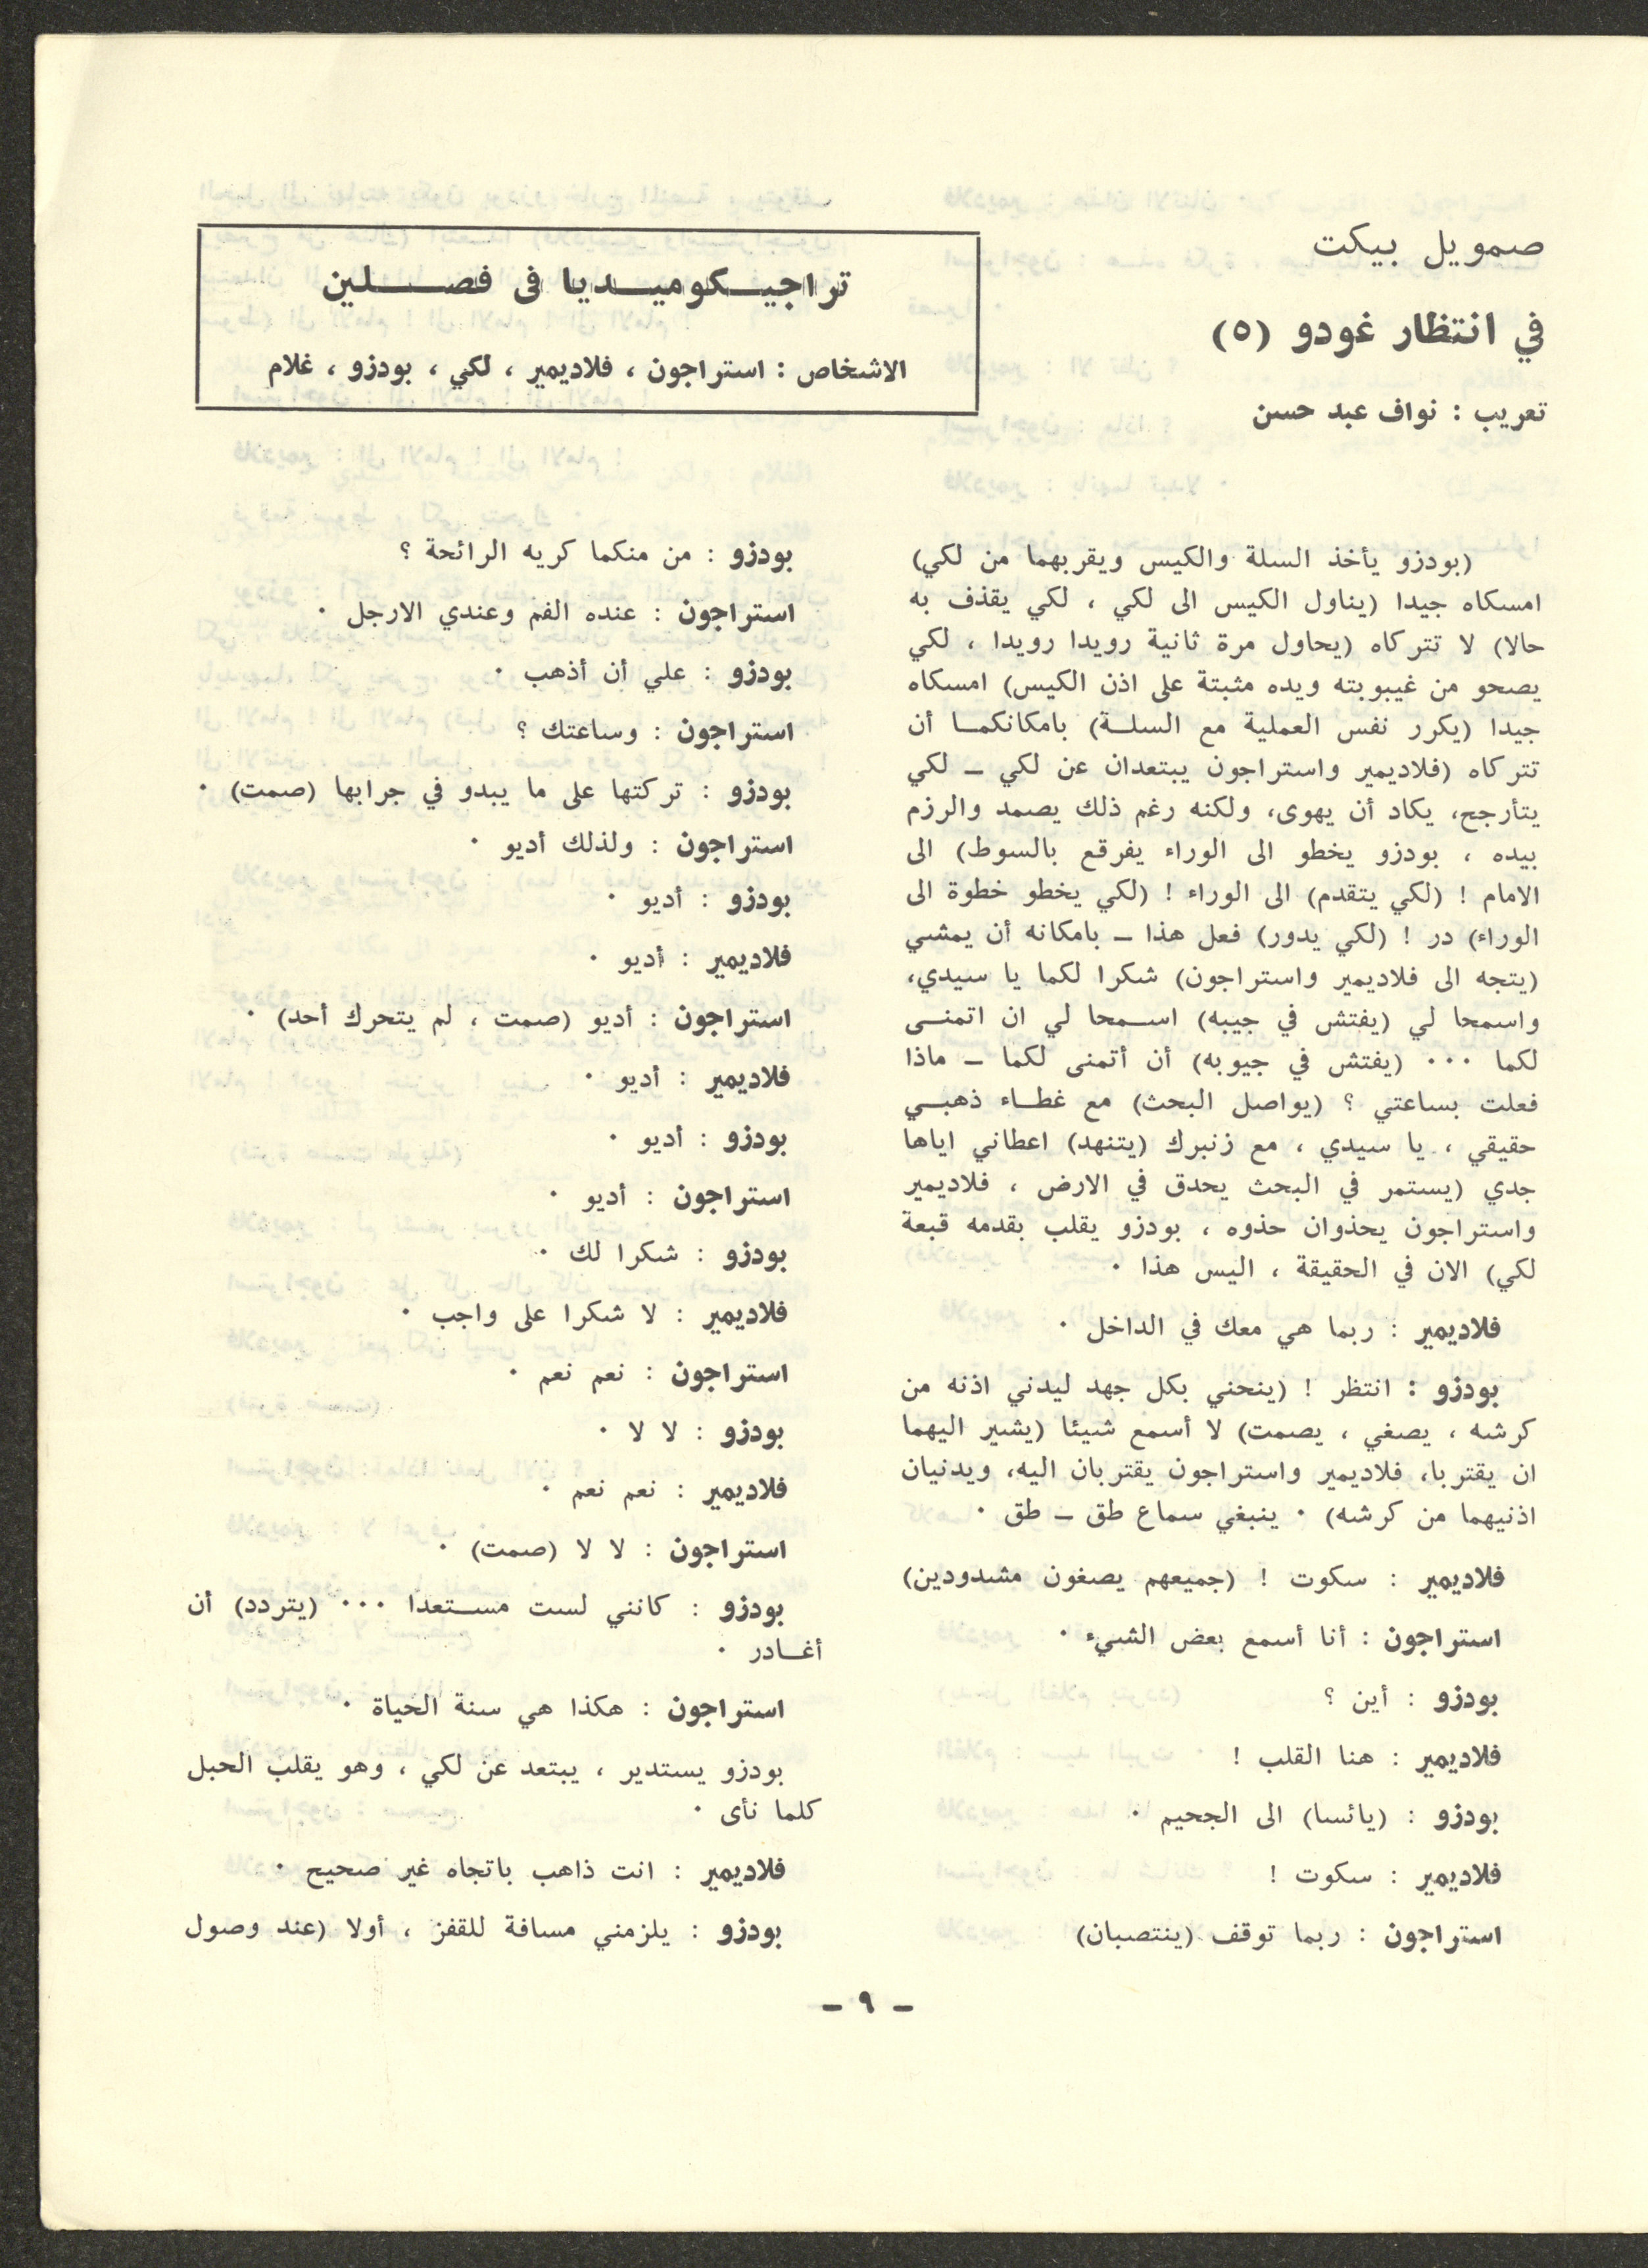 صمويل بيكت
في انتظار غودو (٥)
تعريب : نواف عبد حسن
تراجيـكوميـديا في فصـــلين
الاشخاص : استراجون ، فلاديمير ، لكي ، بودزو ، غلام
(بودزو يأخذ السلة والكيس ويقربهما من لكي)
امسكاه جيدا (يناول الكيس الى لكي ، لكي يقذف به
حالا) لا تتركاه (يحاول مرة ثانية رويدا رويدا ، لكي
يصحو من غيبوبته ويده مثبتة على اذن الكيس) امسكاه
جيدا (يكرر نفس العملية مع السلـة) بامكانكمـا أن
تتركاه (فلاديمير واستراجون يبتعدان عن لكي – لكي
يتأرجح، يكاد أن يهوى، ولكنه رغم ذلك يصمد والرزم
بيده ، بودزو يخطو الى الوراء يفرقع بالسوط) الى
الامام ! (لكي يتقدم) الى الوراء ! (لكي يخطو خطوة الى
الوراء) در ! (لكي يدور) فعل هذا – بامكانه أن يمشي
(يتجه الى فلاديمير واستراجون) شكرا لكما يا سيدي،
واسمحا لي (يفتش في جيبه) اسـمحا لي ان اتمنـى
لكما ٠٠٠ (يفتش في جيوبه) أن أتمنى لكما – ماذا
فعلت بساعتي ؟ (يواصل البحث) مع غطـاء ذهبـي
حقيقي ، يا سيدي ، مع زنبرك (يتنهد) اعطاني اياها
جدي (يستمر في البحث يحدق في الارض ، فلاديمير
واستراجون يحذوان حذوه ، بودزو يقلب بقدمه قبعة
لكي) الان في الحقيقة ، اليس هذا ٠
فلاديمير : ربما هي معك في الداخل ٠
بودزو : انتظر ! (ينحني بكل جهد ليدني اذنه من
كرشه ، يصغي ، يصمت) لا أسمع شيئا (يشير اليهما
ان يقتربا، فلاديمير واستراجون يقتربان اليه، ويدنيان
اذنيهما من كرشه) ٠ ينبغي سماع طق – طق ٠
فلاديمير : سكوت ! (جميعهم يصغون مشدودين)
استراجون : أنا أسمع بعض الشيء ٠
بودزو : أين ؟
فلاديمير : هنا القلب !
بودزو : (يائسا) الى الجحيم ٠
فلاديمير : سكوت !
استراجون : ربما توقف (ينتصبان)
بودزو : من منكما كريه الرائحة ؟
استراجون : عنده الفم وعندي الارجل ٠
بودزو : علي أن أذهب ٠
استراجون : وساعتك ؟
بودزو : تركتها على ما يبدو في جرابها (صمت) ٠
استراجون : ولذلك أديو ٠
بودزو : أديو ٠
فلاديمير : أديو ٠
استراجون : أديو (صمت ، لم يتحرك أحد) ٠
فلاديمير : أديو ٠
بودزو : أديو ٠
استراجون : أديو ٠
بودزو : شكرا لك ٠
فلاديمير : لا شكرا على واجب ٠
استراجون : نعم نعم ٠
بودزو : لا لا ٠
فلاديمير : نعم نعم ٠
استراجون : لا لا (صمت) ٠
بودزو : كانني لست مسـتعدا ٠٠٠ (يتردد) أن
أغـادر ٠
استراجون : هكذا هي سنة الحياة ٠
بودزو يستدير ، يبتعد عن لكي ، وهو يقلب الحبل
كلما نأى ٠
فلاديمير : انت ذاهب باتجاه غير صحيح ٠
بودزو : يلزمني مسافة للقفز ، أولا (عند وصول
– ٩ –